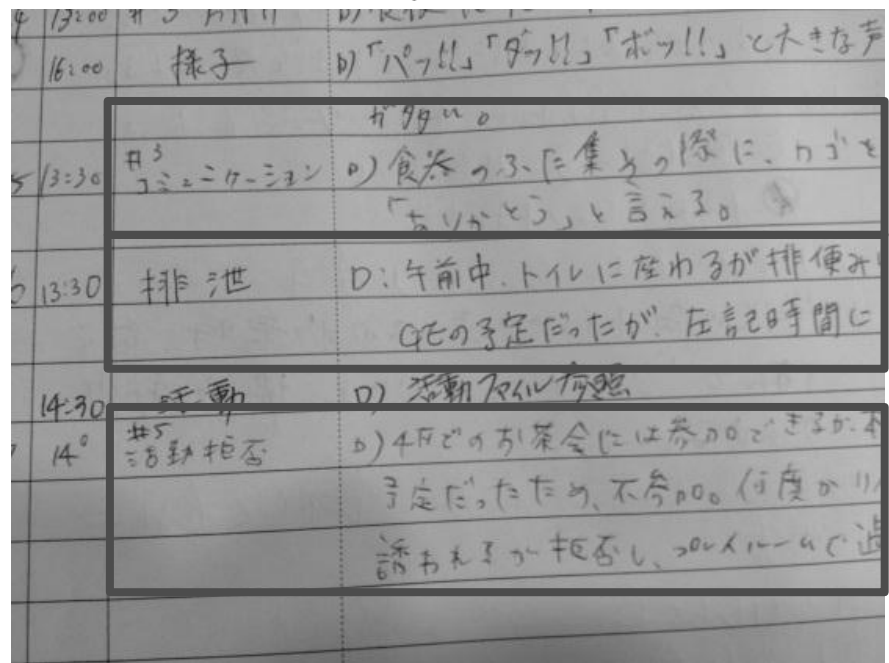 4 13:00 #3
16:00 様子 D)「パッ!!」「ダッ!!」「ボッ!!」と大きな声
が多い。
5 13:30 #3 コミュニケーション D) 食器のふた集めの際に、カゴを
「ありがとう」と言える。
6 13:30 排泄 D:午前中、トイレに座わるが排便み
GEの予定だったが、左記時間に
14:30 活動 D) 活動ファイル参照
14° #5 活動拒否 D) 4Fでのお茶会には参加できるが、
予定だったため、不参加。何度か
誘われるが拒否し、プレイルームで過